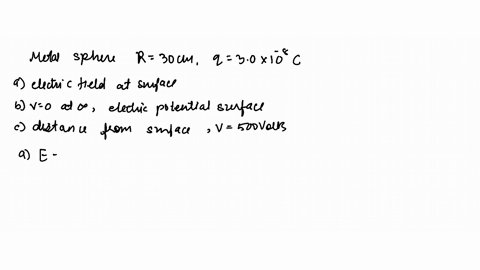 Metal sphere R = 30 cm, q = 3.0 x 10⁻⁸ C
a) electric field at surface
b) v = 0 at ∞, electric potential surface
c) distance from surface, V = 500 Volts
a) E -